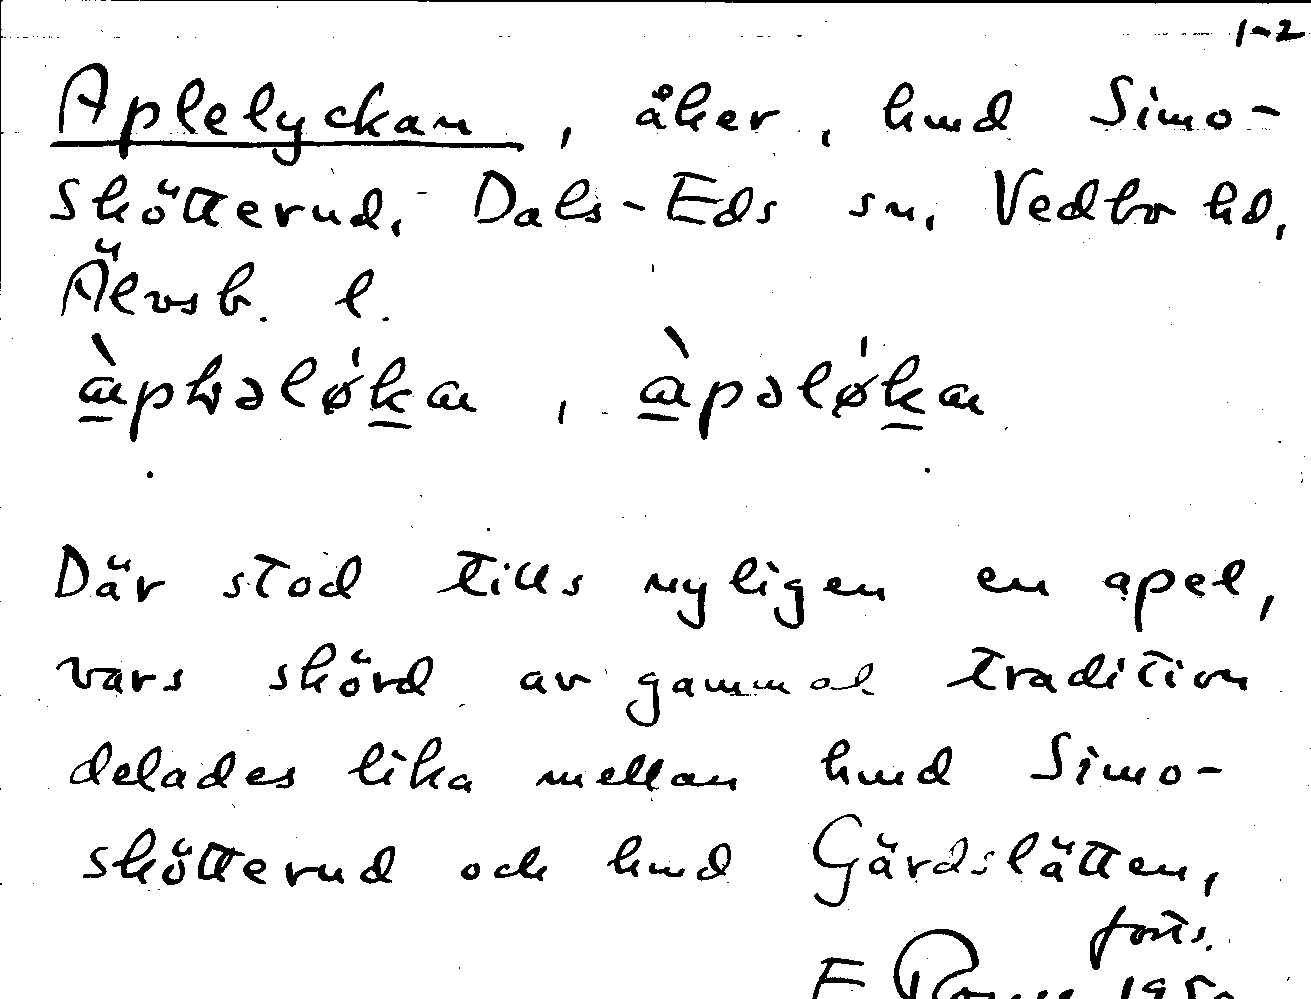 1-2
Aplelyckan, åker, hmd Simo-
skötterud, Dals-Eds sn, Vedbo hd,
Älvsb. l.
Där stod tills nyligen en apel,
vars skörd av gammal tradition
delades lika mellan hmd Simo-
skötterud och hmd Gärdslätten,
forts.